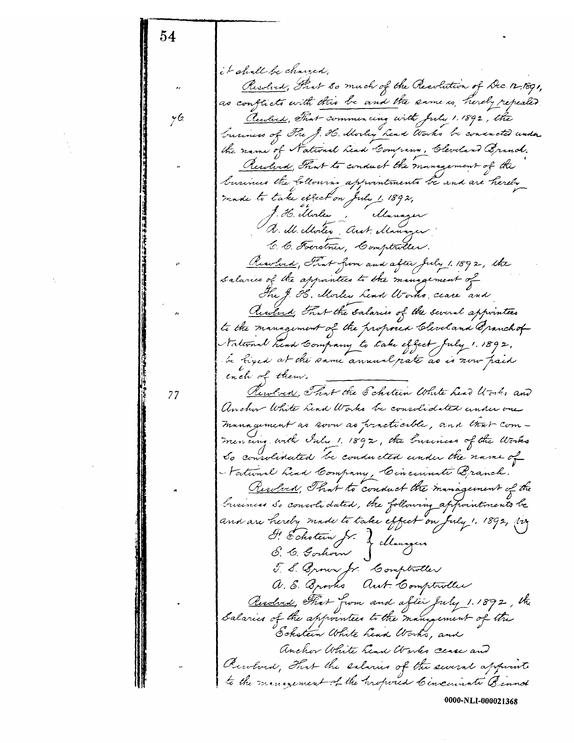 54
it shall be changed.
" Resolved, That so much of the Resolution of Dec. 17, 1891,
as conflicts with this be and the same is, hereby repealed
76 Resolved, That commencing with July 1. 1892, the
business of The J. H. Morley Lead Works be conducted under
the name of National Lead Company, Cleveland Branch.
" Resolved, That to conduct the management of the
business the following appointments be and are hereby
made to take effect on July 1, 1892,
J. H. Morley, Manager
A. M. Morley, Asst. Manager
C. C. Foerstner, Comptroller.
" Resolved, That from and after July 1. 1892, the
salaries of the appointees to the management of
The J. H. Morley Lead Works, cease and
" Resolved, That the salaries of the several appointees
to the management of the proposed Cleveland Branch of
National Lead Company to take effect July 1. 1892,
be fixed at the same annual rate as is now paid
each of them.
77 Resolved, That the Eckstein White Lead Works and
Anchor White Lead Works be consolidated under one
management as soon as practicable, and that com-
mencing with July 1. 1892, the business of the Works
so consolidated be conducted under the name of
National Lead Company, Cincinnati Branch.
" Resolved, That to conduct the management of the
business so consolidated, the following appointments be
and are hereby made to take effect on July 1. 1892, viz
F. Eckstein Jr. } Managers
E. C. Goshorn
T. S. Brown Jr. Comptroller
A. E. Brooks Asst. Comptroller
" Resolved, That from and after July 1. 1892, the
Salaries of the appointees to the management of the
Eckstein White Lead Works, and
Anchor White Lead Works cease and
" Resolved, That the salaries of the several appoint
to the management of the proposed Cincinnati Branch
0000-NLI-000021368